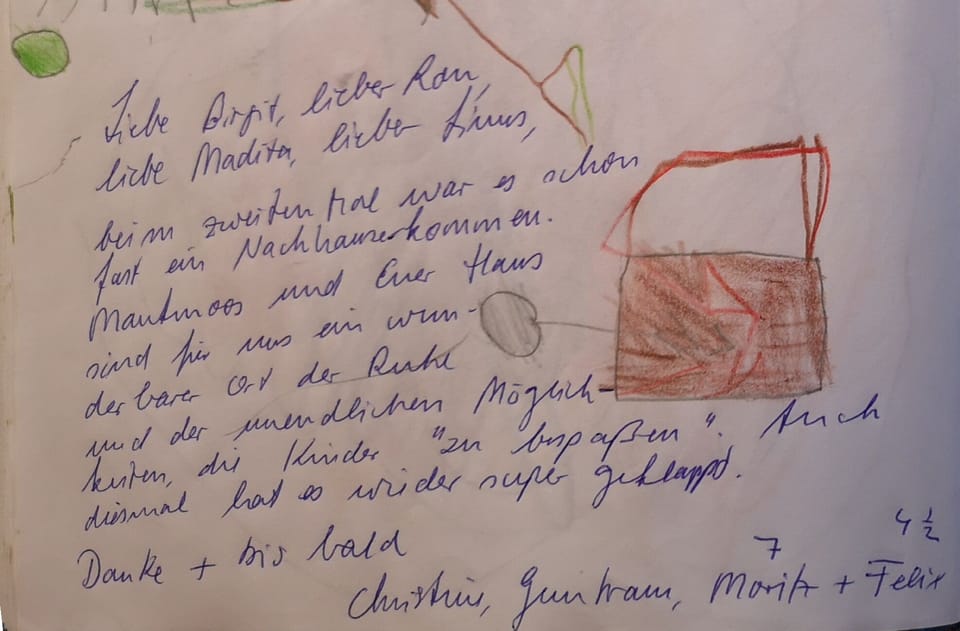 Liebe Birgit, lieber Ron,
liebe Madita, lieber Linus,
beim zweiten Mal war es schon
fast ein Nachhausekommen.
Mautmoos und Euer Haus
sind für uns ein wun-
derbarer Ort der Ruhe
und der unendlichen Möglich-
keiten, die Kinder "zu bespaßen". Auch
diesmal hat es wieder super geklappt.
Danke + bis bald
7 4 ½
Christine, Guntram, Moritz + Felix